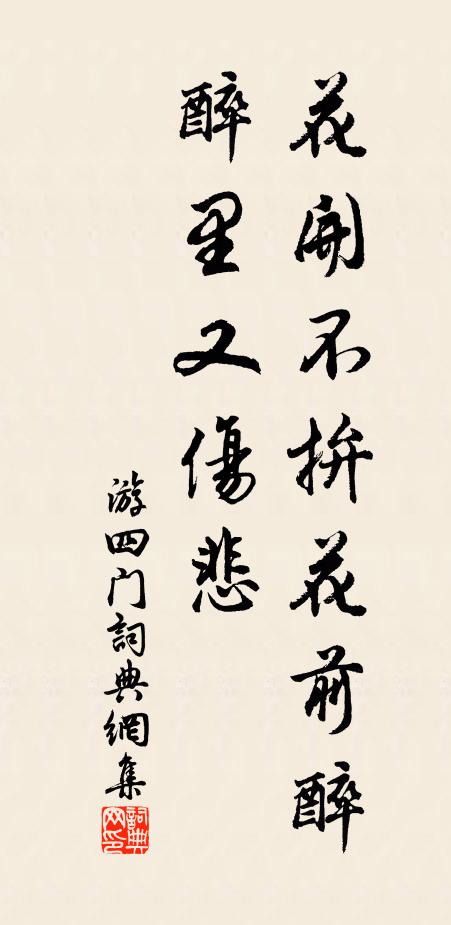 花開不拚花前醉
醉里又傷悲
游四门詞典網集
詞典网印